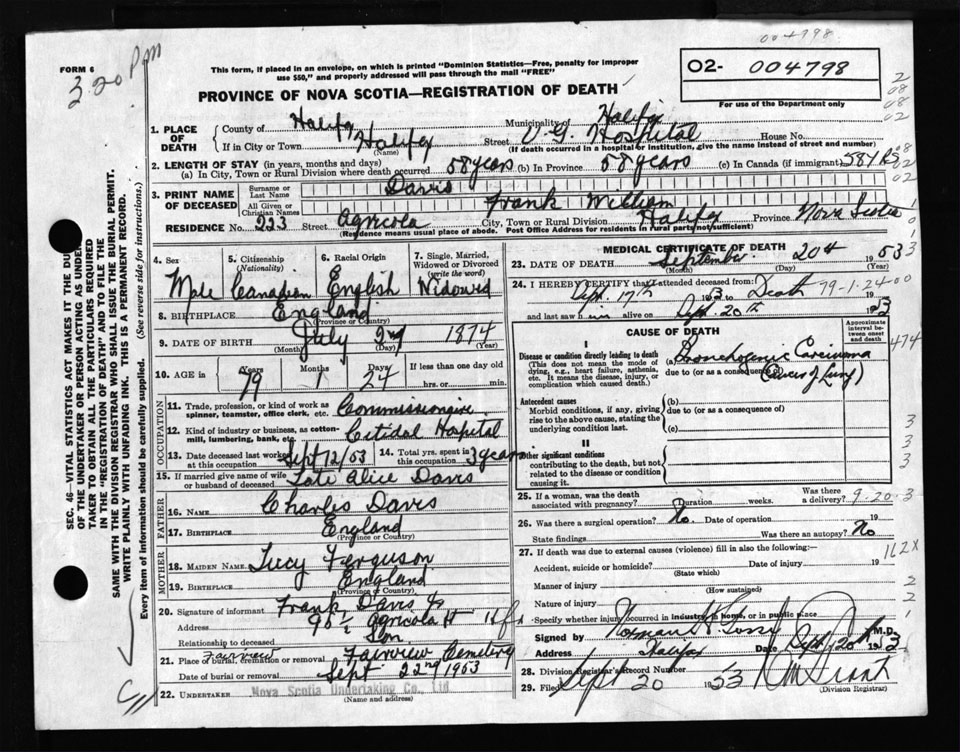 004798
FORM 6
3.20 PM
This form, if placed in an envelope, on which is printed "Dominion Statistics—Free, penalty for improper
use $50," and properly addressed will pass through the mail "FREE"
O2- 004798
For use of the Department only
PROVINCE OF NOVA SCOTIA—REGISTRATION OF DEATH
1. PLACE OF DEATH
County of Halifax Municipality of Halifax
If in City or Town Halifax (Name) Street V.G. Hospital House No.
(If death occurred in a hospital or institution, give the name instead of street and number)
2. LENGTH OF STAY (in years, months and days)
(a) In City, Town or Rural Division where death occurred 58 years (b) In Province 58 years (c) In Canada (if immigrant) 58 YRS
3. PRINT NAME OF DECEASED
Surname or Last Name Davis
All Given or Christian Names Frank William
RESIDENCE No. 223 Street Agricola City, Town or Rural Division Halifax Province Nova Scotia
(Residence means usual place of abode. Post Office Address for residents in rural parts not sufficient)
4. Sex Male
5. Citizenship (Nationality) Canadian
6. Racial Origin English
7. Single, Married, Widowed or Divorced (write the word) Widowed
8. BIRTHPLACE England
(Province or Country)
9. DATE OF BIRTH July 2nd 1874
(Month) (Day) (Year)
10. AGE in Years 79 Months 1 Days 24 If less than one day old hrs. or min.
OCCUPATION
11. Trade, profession, or kind of work as spinner, teamster, office clerk, etc. Commissionaire
12. Kind of industry or business, as cotton-mill, lumbering, bank, etc. Citidal Hospital
13. Date deceased last worked at this occupation Sept 12/53
14. Total yrs. spent in this occupation 3 years
15. If married give name of wife or husband of deceased Late Alice Davis
FATHER
16. Name Charles Davis
17. Birthplace England
(Province or Country)
MOTHER
18. MAIDEN NAME Lucy Ferguson
19. BIRTHPLACE England
(Province or Country)
20. Signature of informant Frank Davis Jr
Address 95 1/2 Agricola St Hfx
Relationship to deceased Son
21. Place of burial, cremation or removal Fairview Fairview Cemetery
Date of burial or removal Sept 22nd 1953
22. UNDERTAKER Nova Scotia Undertaking Co., Ltd
(Name and address)
MEDICAL CERTIFICATE OF DEATH
23. DATE OF DEATH September 20th 1953
(Month) (Day)
24. I HEREBY CERTIFY that I attended deceased from: Sept. 17th 1953 to Death 79-1-24-00
and last saw him alive on Sept. 20th 1953
CAUSE OF DEATH
Approximate interval between onset and death
I
Disease or condition directly leading to death
(This does not mean the mode of dying, e.g., heart failure, asthenia, etc. It means the disease, injury, or complication which caused death.)
(a) Bronchogenic Carcinoma
due to (or as a consequence of) (Cancer of Lung)
474
Antecedent causes
Morbid conditions, if any, giving rise to the above cause, stating the underlying condition last.
(b)
due to (or as a consequence of)
(c)
II
Other significant conditions
contributing to the death, but not related to the disease or condition causing it.
25. If a woman, was the death associated with pregnancy? Duration weeks. Was there a delivery? 9-20-3
26. Was there a surgical operation? No. Date of operation 19
State findings Was there an autopsy? No
27. If death was due to external causes (violence) fill in also the following:—
Accident, suicide or homicide? (State which) Date of injury 19
162X
Manner of injury
(How sustained)
Nature of injury
Specify whether injury occurred in industry, in home, or in public place
Signed by Norman H. M.D.
Address Halifax Date Sept. 20 1953
28. Division Registrar's Record Number
29. Filed Sept 20 1953
(Division Registrar)
SEC. 46—VITAL STATISTICS ACT MAKES IT THE DUTY
OF THE UNDERTAKER OR PERSON ACTING AS UNDER-
TAKER TO OBTAIN ALL THE PARTICULARS REQUIRED
IN THE "REGISTRATION OF DEATH" AND TO FILE THE
SAME WITH THE DIVISION REGISTRAR WHO SHALL ISSUE THE BURIAL PERMIT.
WRITE PLAINLY WITH UNFADING INK. THIS IS A PERMANENT RECORD.
Every item of information should be carefully supplied. (See reverse side for instructions.)